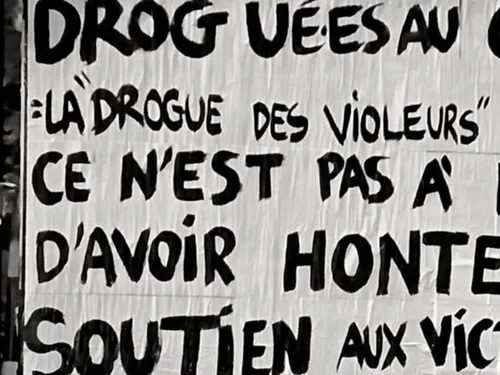 DROGUÉ·ES AU
= LA "DROGUE DES VIOLEURS"
CE N'EST PAS À
D'AVOIR HONTE
SOUTIEN AUX VIC